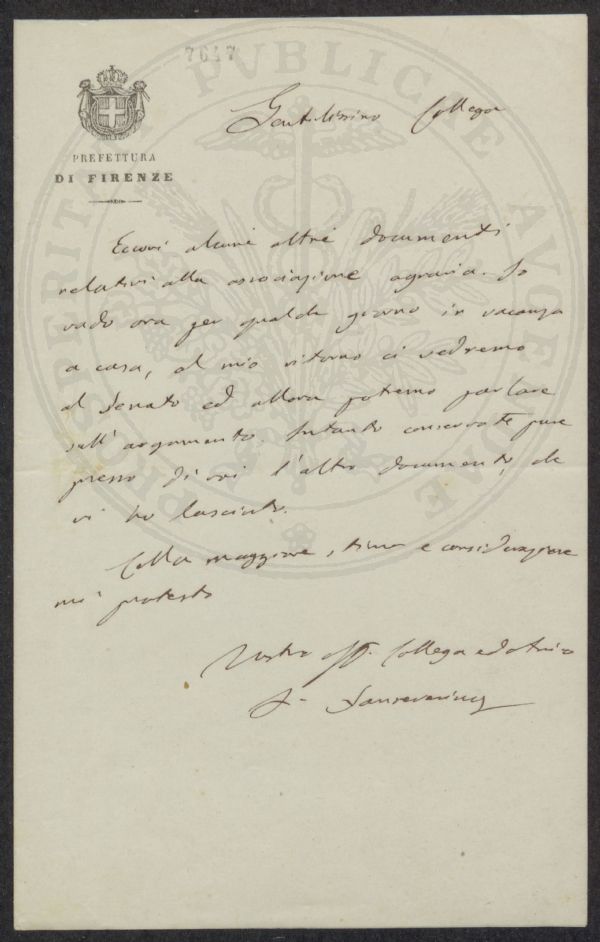 7647
PREFETTURA
DI FIRENZE
Gentilissimo Collega
Eccovi alcuni altri documenti
relativi alla associazione agraria. Io
vado ora per qualche giorno in vacanza
a casa, al mio ritorno ci vedremo
al Senato ed allora potremo parlare
sull'argomento. Intanto conservate pure
presso di voi l'altro documento che
vi ho lasciato.
Colla maggiore stima e considerazione
mi protesto
Vostro aff. Collega ed amico
F. Sanseverino
PROSPERITATI PVBLICAE AVGENDAE